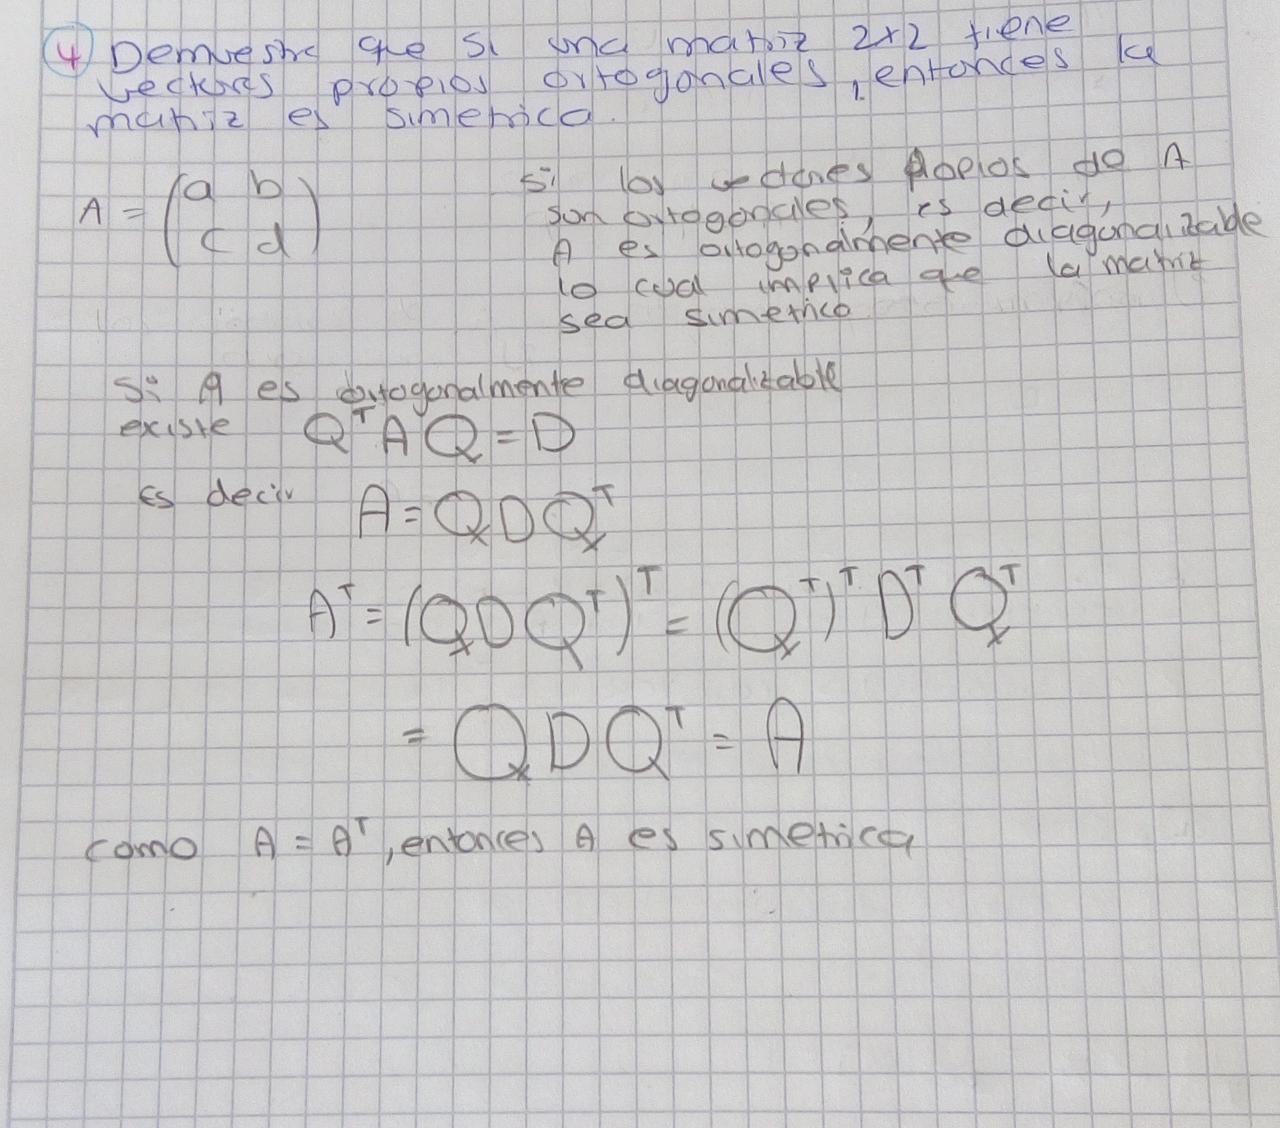 4 Demuestre que si una matriz 2x2 tiene
vectores propios ortogonales, entonces la
matriz es simetrica.
A = (a b
c d)
Si los vectores propios de A
son ortogonales, es decir,
A es ortogonalmente diagonalizable
lo cual implica que la matriz
sea simetrica
Si A es ortogonalmente diagonalizable
existe Qᵀ A Q = D
Es decir A = Q D Qᵀ
Aᵀ = (Q D Qᵀ)ᵀ = (Qᵀ)ᵀ Dᵀ Qᵀ
= Q D Qᵀ = A
como A = Aᵀ, entonces A es simetrica